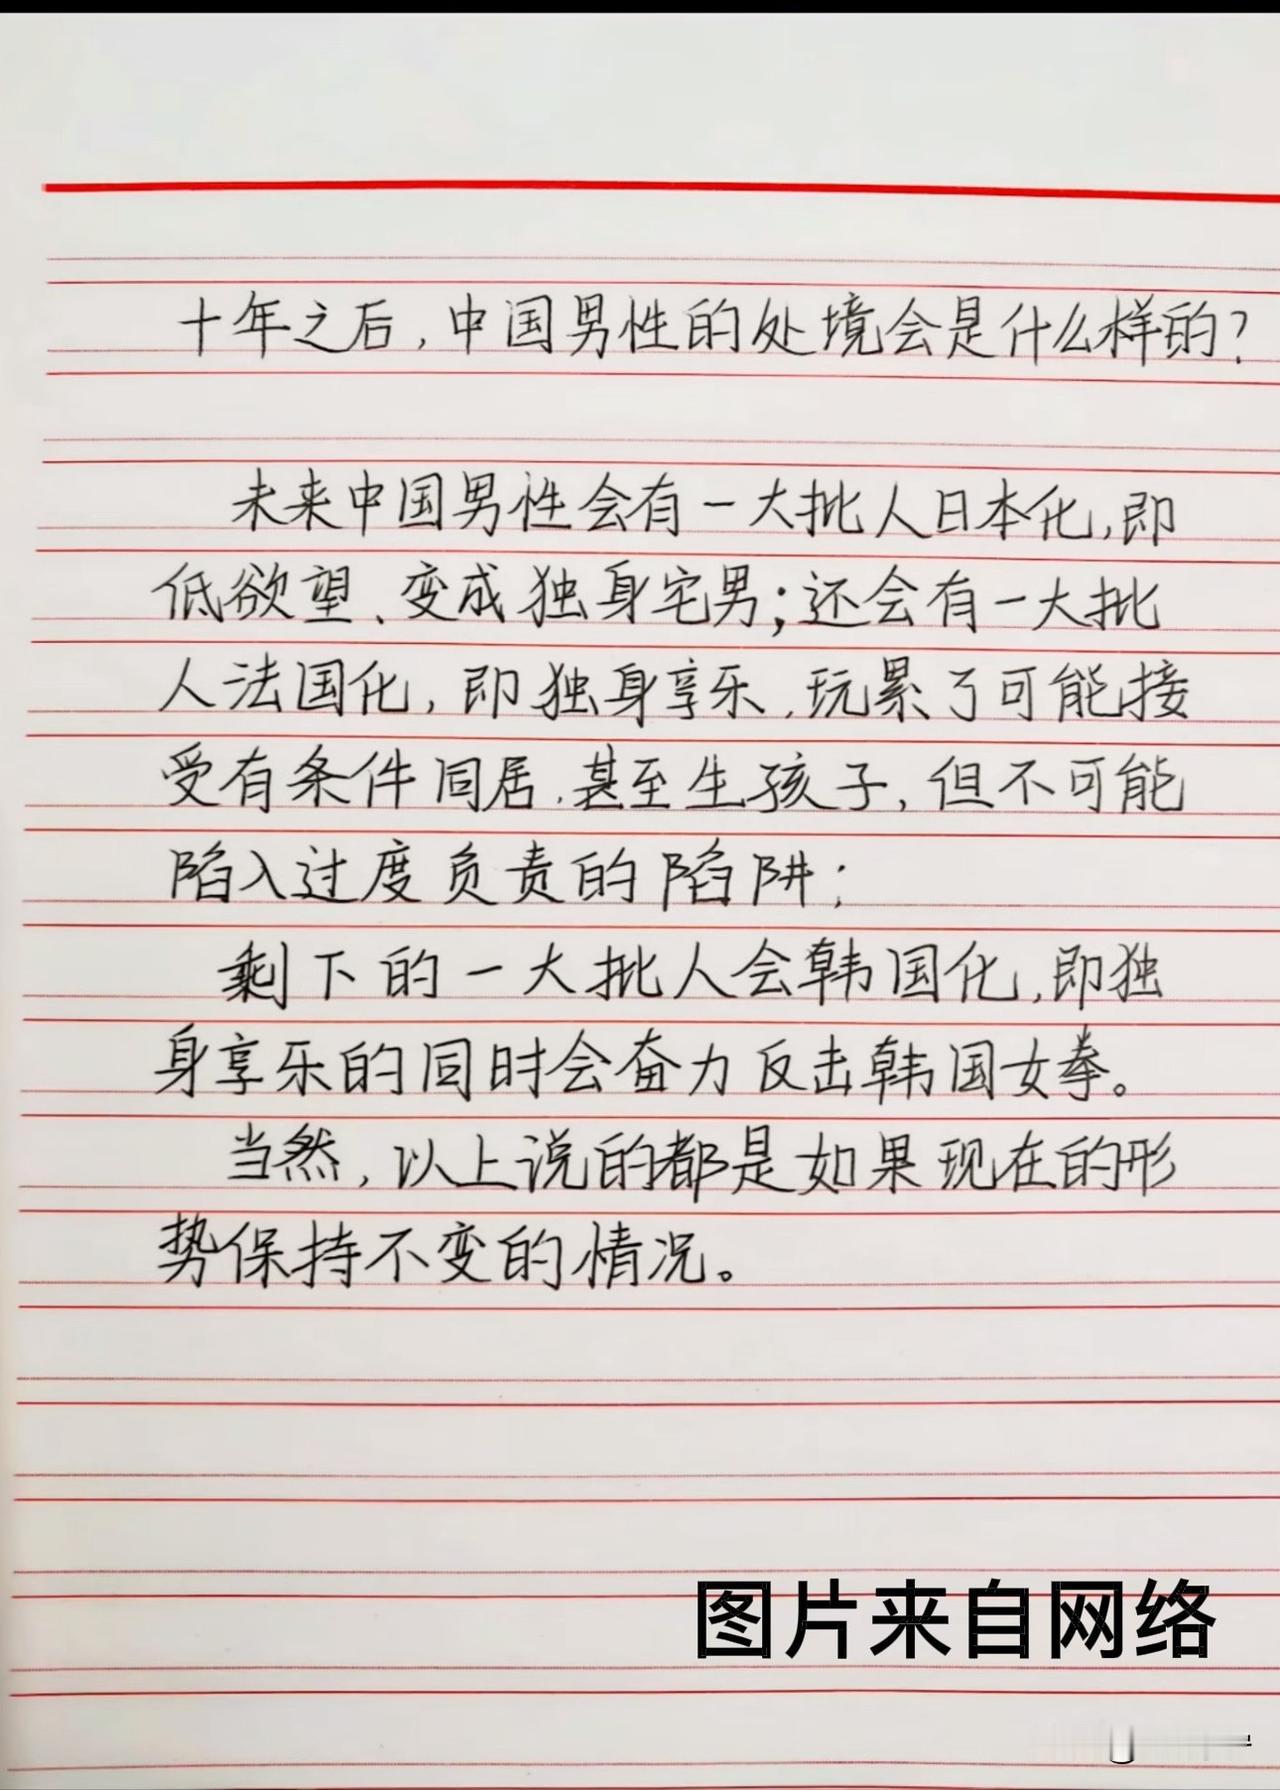 十年之后，中国男性的处境会是什么样的？
未来中国男性会有一大批人日本化，即
低欲望、变成独身宅男；还会有一大批
人法国化，即独身享乐，玩累了可能接
受有条件同居，甚至生孩子，但不可能
陷入过度负责的陷阱；
剩下的一大批人会韩国化，即独
身享乐的同时会奋力反击韩国女拳。
当然，以上说的都是如果现在的形
势保持不变的情况。
图片来自网络